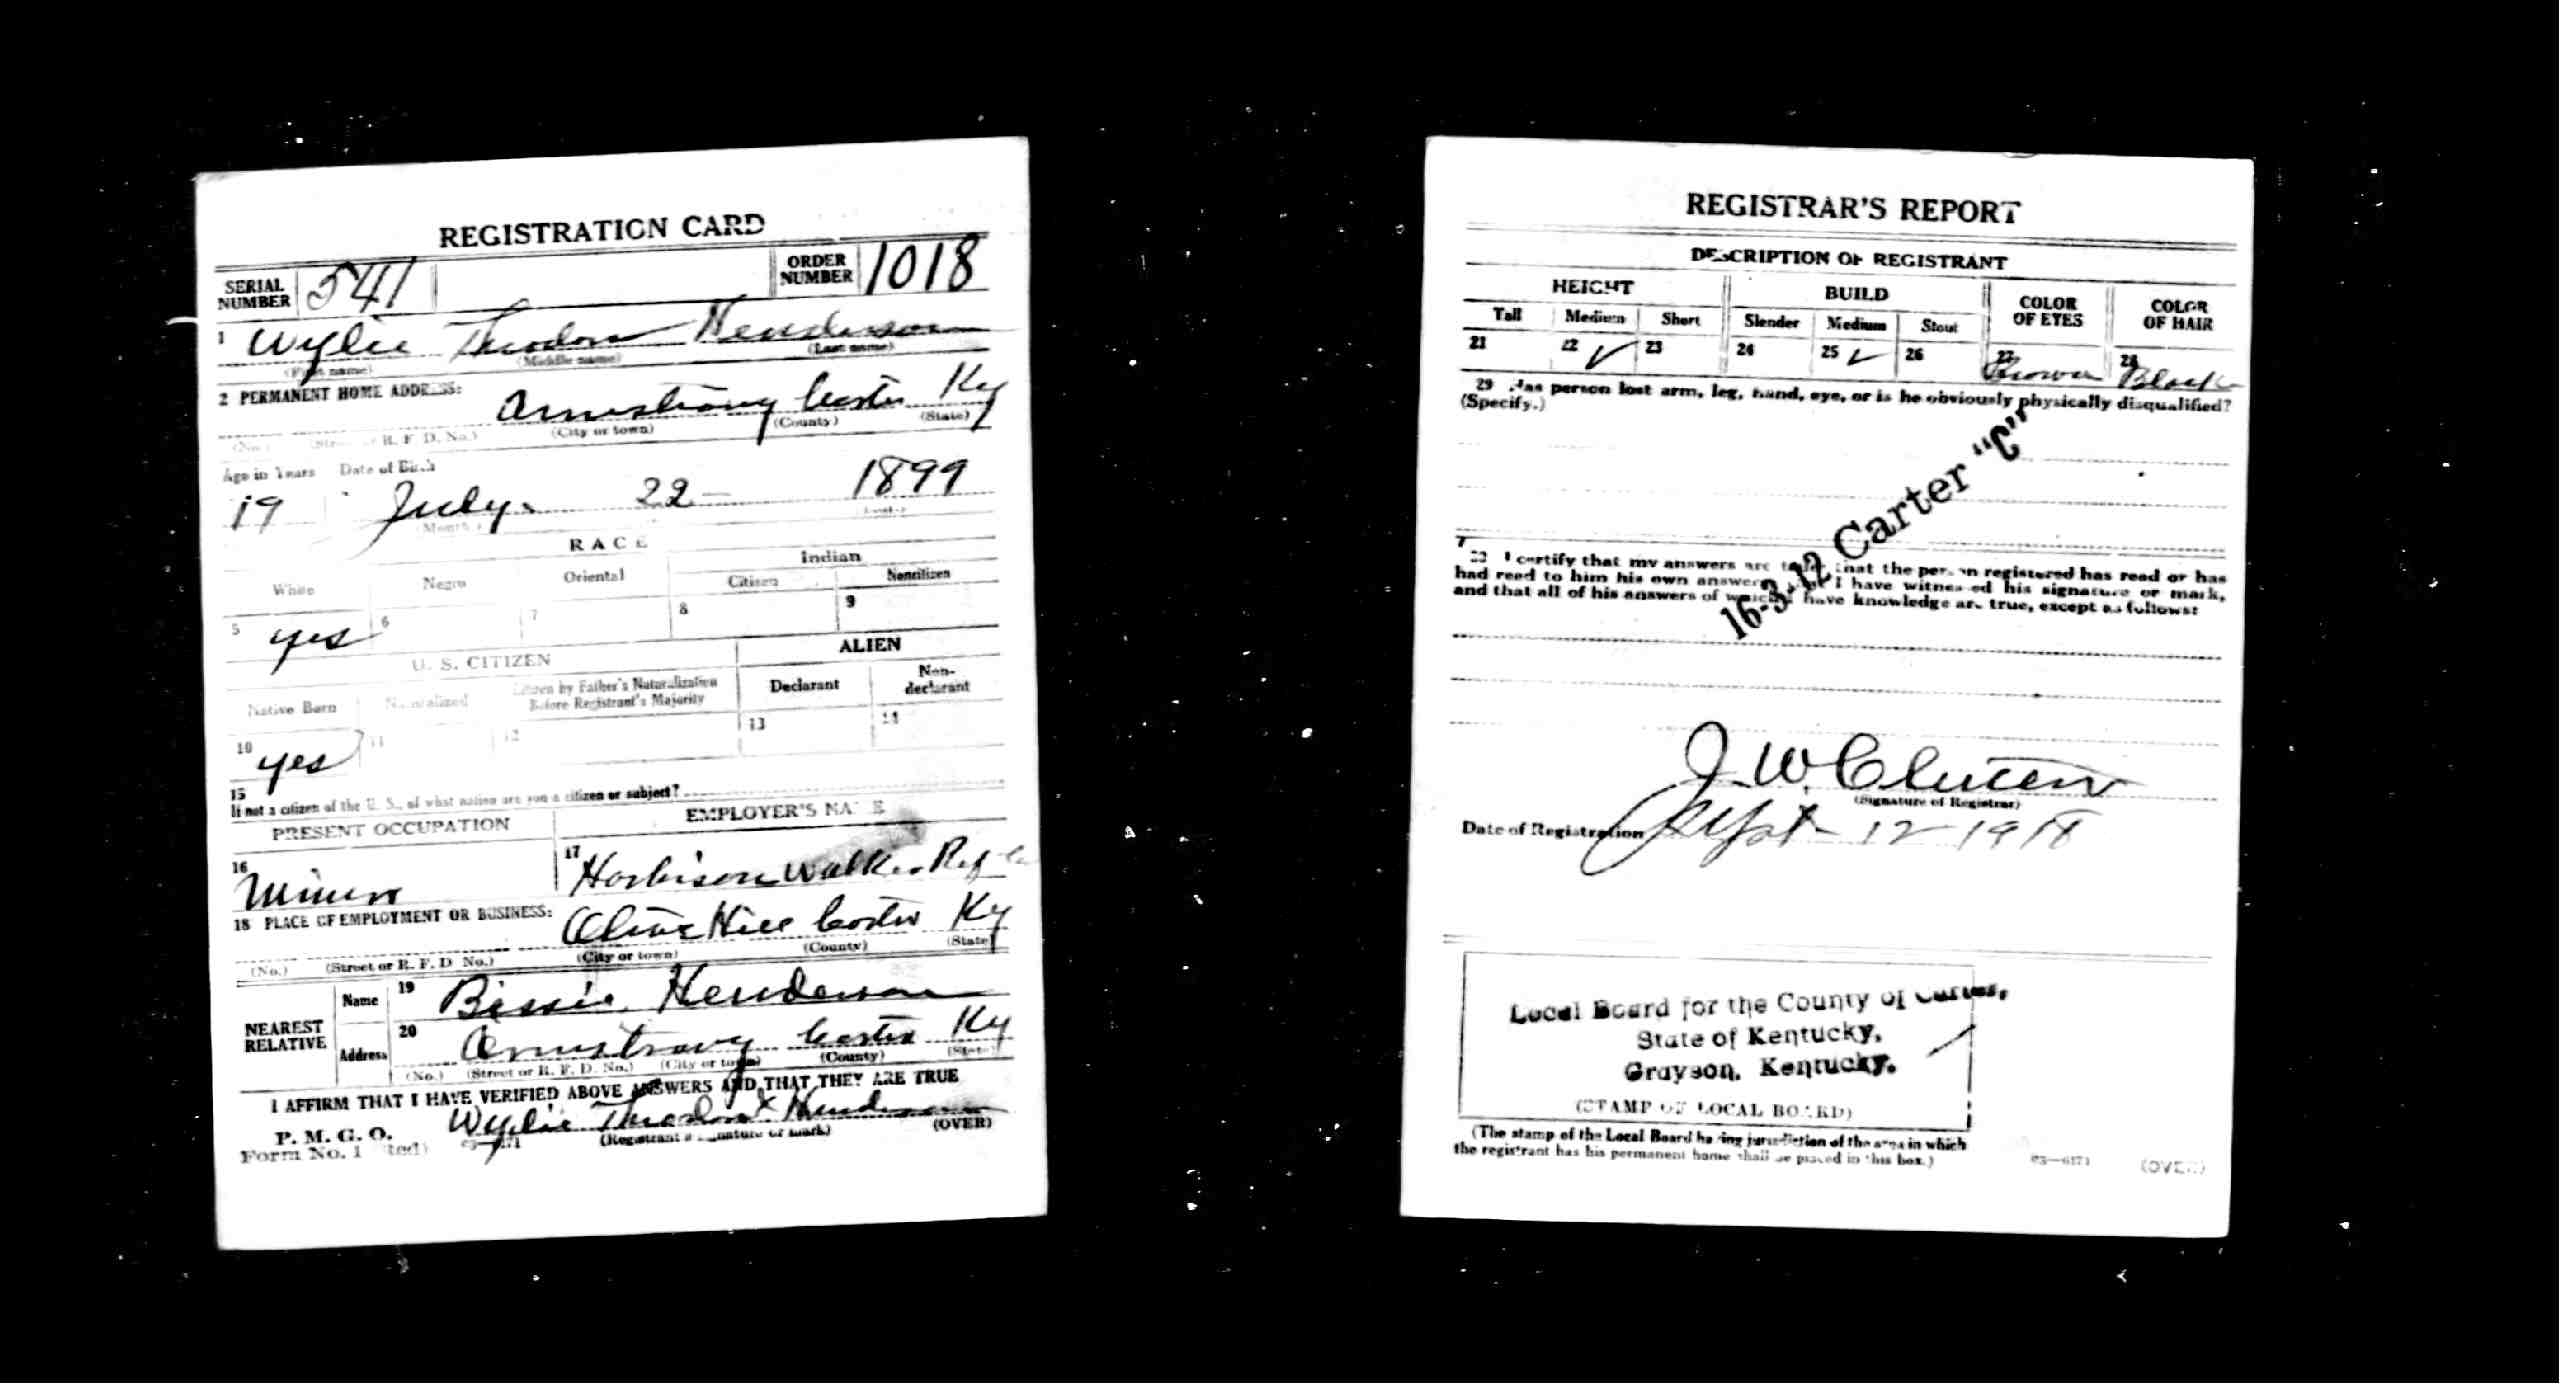 REGISTRATION CARD
SERIAL NUMBER 541 ORDER NUMBER 1018
1 Wylie Theodore Henderson
(First name) (Middle name) (Last name)
2 PERMANENT HOME ADDRESS:
Armstrong Carter Ky
(No.) (Street or R. F. D. No.) (City or town) (County) (State)
Age in Years Date of Birth
19 July. 22 - 1899
(Month)
RACE
White Negro Oriental Indian
Citizen Noncitizen
5 yes 6 7 8 9
U. S. CITIZEN ALIEN
Native Born Naturalized Citizen by Father's Naturalization Before Registrant's Majority Declarant Non-declarant
10 yes 11 12 13 14
15
If not a citizen of the U. S., of what nation are you a citizen or subject?
PRESENT OCCUPATION EMPLOYER'S NAME
16 Miner 17 Harbison Walker
18 PLACE OF EMPLOYMENT OR BUSINESS:
Olive Hill Carter Ky
(No.) (Street or R. F. D. No.) (City or town) (County) (State)
NEAREST RELATIVE Name 19 Bessie Henderson
Address 20 Armstrong Carter Ky
(No.) (Street or R. F. D. No.) (City or town) (County) (State)
I AFFIRM THAT I HAVE VERIFIED ABOVE ANSWERS AND THAT THEY ARE TRUE
P. M. G. O.
Form No. 1 Wylie Theodore Henderson
(Registrant's signature or mark) (OVER)
REGISTRAR'S REPORT
DESCRIPTION OF REGISTRANT
HEIGHT BUILD COLOR OF EYES COLOR OF HAIR
Tall Medium Short Slender Medium Stout
21 22 ✓ 23 24 25 ✓ 26 27 Brown 28 Black
29 Has person lost arm, leg, hand, eye, or is he obviously physically disqualified?
(Specify.)
16-3-12 Carter "C"
I certify that my answers are true that the person registered has read or has
had read to him his own answers that I have witnessed his signature or mark,
and that all of his answers of which I have knowledge are true, except as follows:
J. W.
(Signature of Registrar)
Date of Registration Sept 12 1918
Local Board for the County of Carter,
State of Kentucky,
Grayson, Kentucky.
(STAMP OF LOCAL BOARD)
(The stamp of the Local Board having jurisdiction of the area in which
the registrant has his permanent home shall be placed in this box.)
03—6171 (OVER)